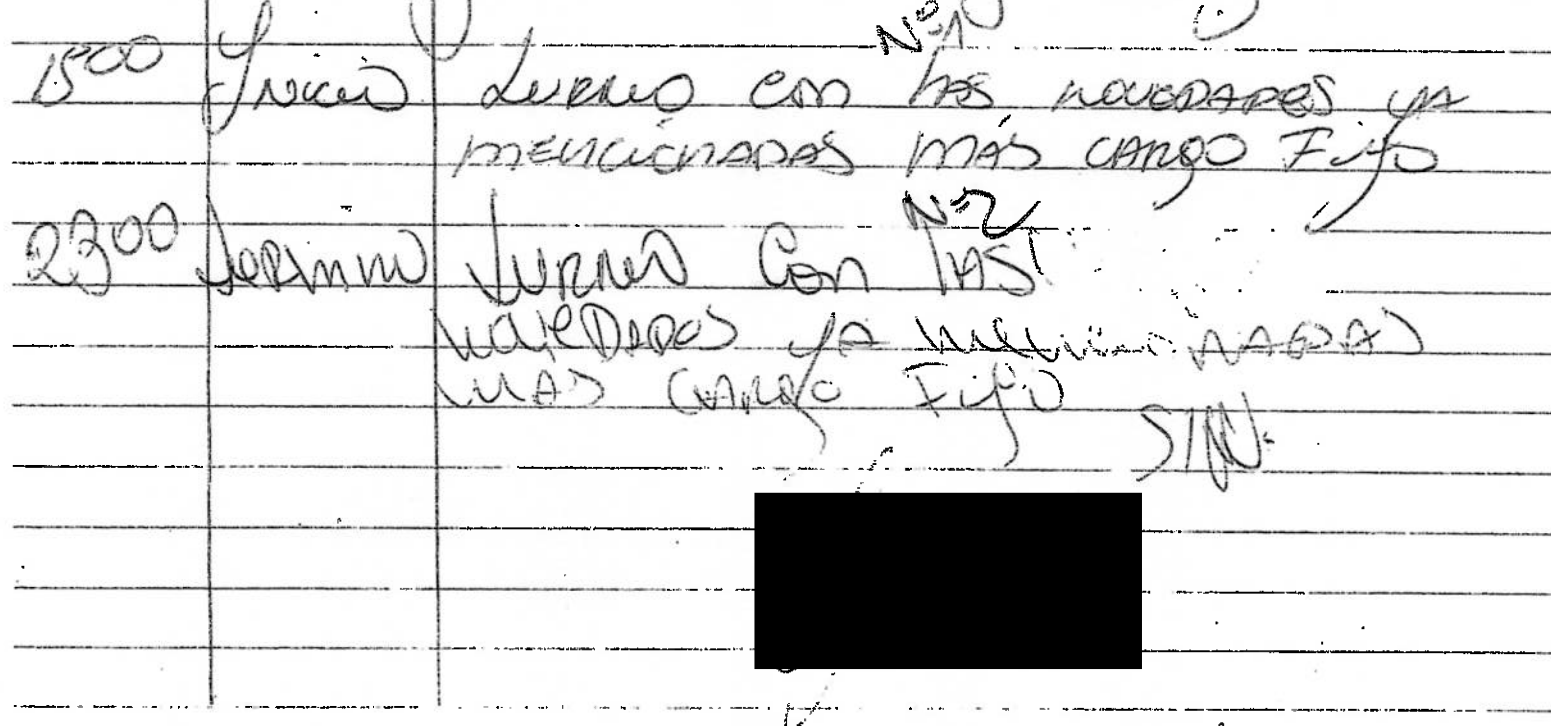 Nº 1
15:00 Inicio turno con las novedades ya
mencionadas más cargo Fijo
Nº 2
23:00 termino turno con las
novedades ya mencionadas
mas cargo Fijo
S/N.